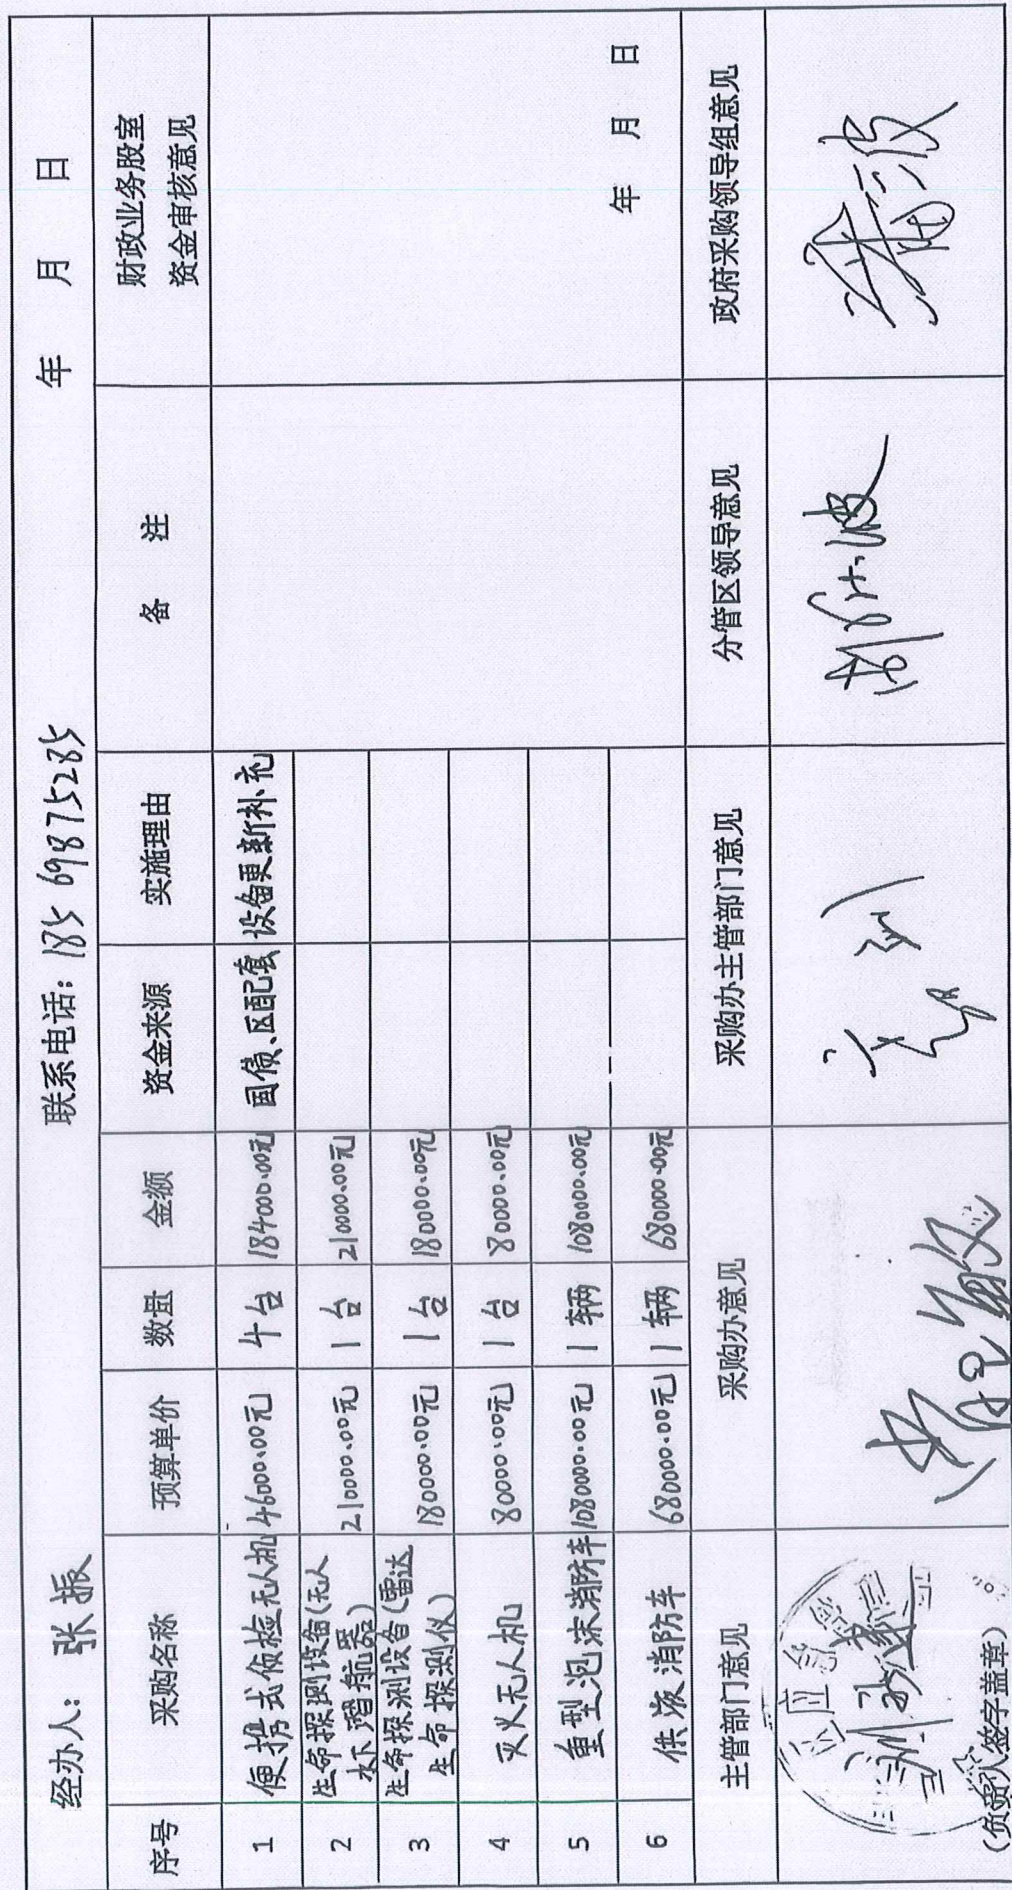 经办人： 张振 联系电话：185 69875285 年 月 日
序号 采购名称 预算单价 数量 金额 资金来源 实施理由 备 注 财政业务股室
资金审核意见
1 便携式侦检无人机 46000.00元 4台 184000.00元 国债、区配套 设备更新补充
2 生命探测设备(无人
水下潜航器) 210000.00元 1台 210000.00元
3 生命探测设备(雷达
生命探测仪) 180000.00元 1台 180000.00元
4 灭火无人机 80000.00元 1台 80000.00元
5 重型泡沫消防车 1080000.00元 1辆 1080000.00元
6 供液消防车 680000.00元 1辆 680000.00元
年 月 日
主管部门意见 采购办意见 采购办主管部门意见 分管区领导意见 政府采购领导组意见
(负责人签字盖章)